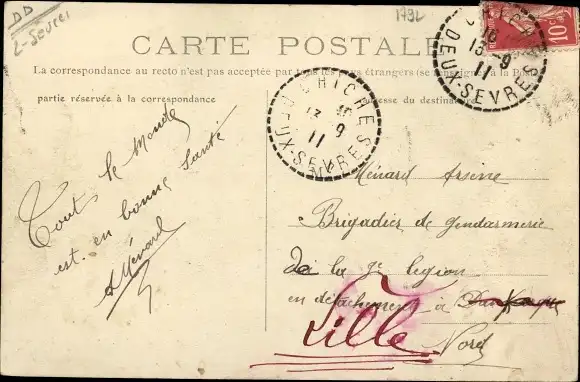 DD
2-Sevres
1792
CARTE POSTALE
La correspondance au recto n'est pas acceptée par tous les pays étrangers (se renseigner à la Poste)
partie réservée à la correspondance
adresse du destinataire
CHICHÉ
10
13-9
11
DEUX-SEVRES
CHICHÉ
13 9
11
DEUX-SEVRES
Tout le Monde
est en bonne Santé
AMénard
Ménard Arsene
Brigadier de Gendarmerie
De la 9e legion
en détachement à
Lille
Nord
10c